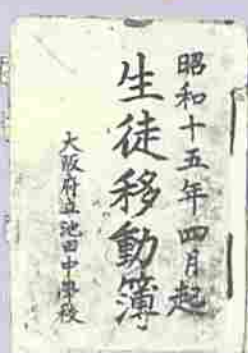 昭和十五年四月起
生徒移動簿
大阪府立池田中學校